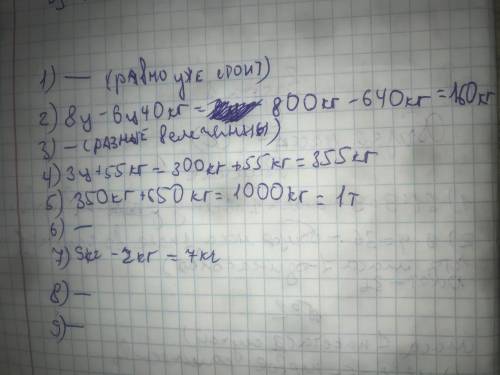 1) — (РАВНО УЖЕ СТОИТ)
2) 8ц - 6ц 40кг = 800кг - 640кг = 160кг
3) - (РАЗНЫЕ величины)
4) 3ц + 55кг = 300кг + 55кг = 355кг
5) 350кг + 650кг = 1000кг = 1т
6) —
7) 9кг - 2кг = 7кг
8) —
9) —